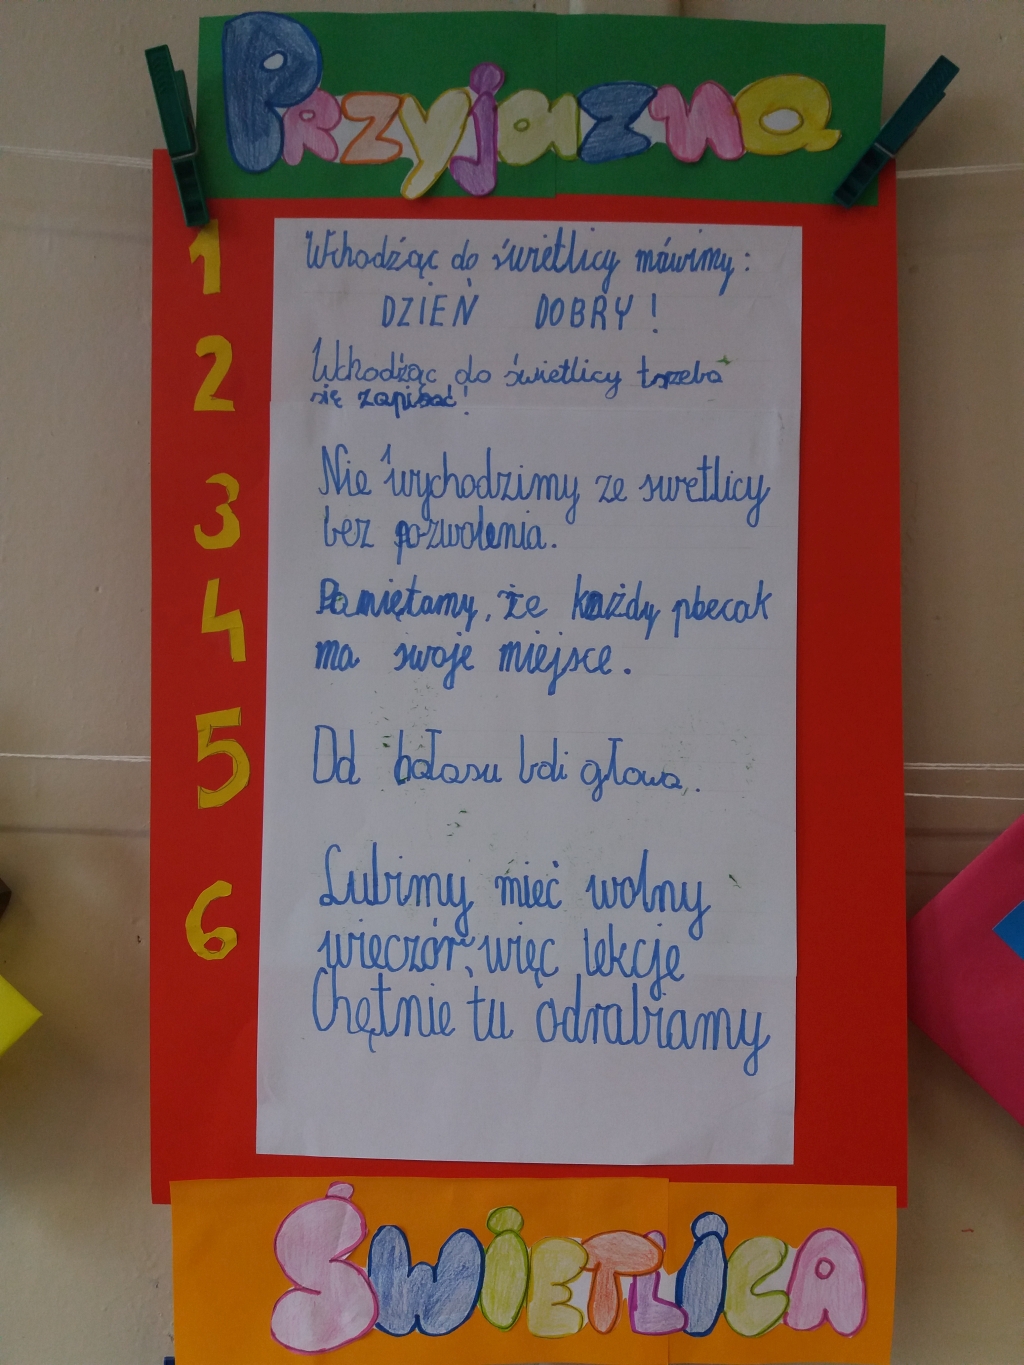 Przyjazna
1
Wchodźąc do świetlicy mówimy:
DZIEŃ DOBRY!
2
Wchodźąc do świetlicy trzeba
się zapisać!
3
Nie wychodzimy ze swetlicy
bez pozwolenia.
4
Pamiętamy, że każdy plecak
ma swoje miejsce.
5
Od hałasu boli głowa.
6
Lubimy mieć wolny
wieczór, więc lekcje
Chętnie tu odrabiamy
ŚWIETLICA